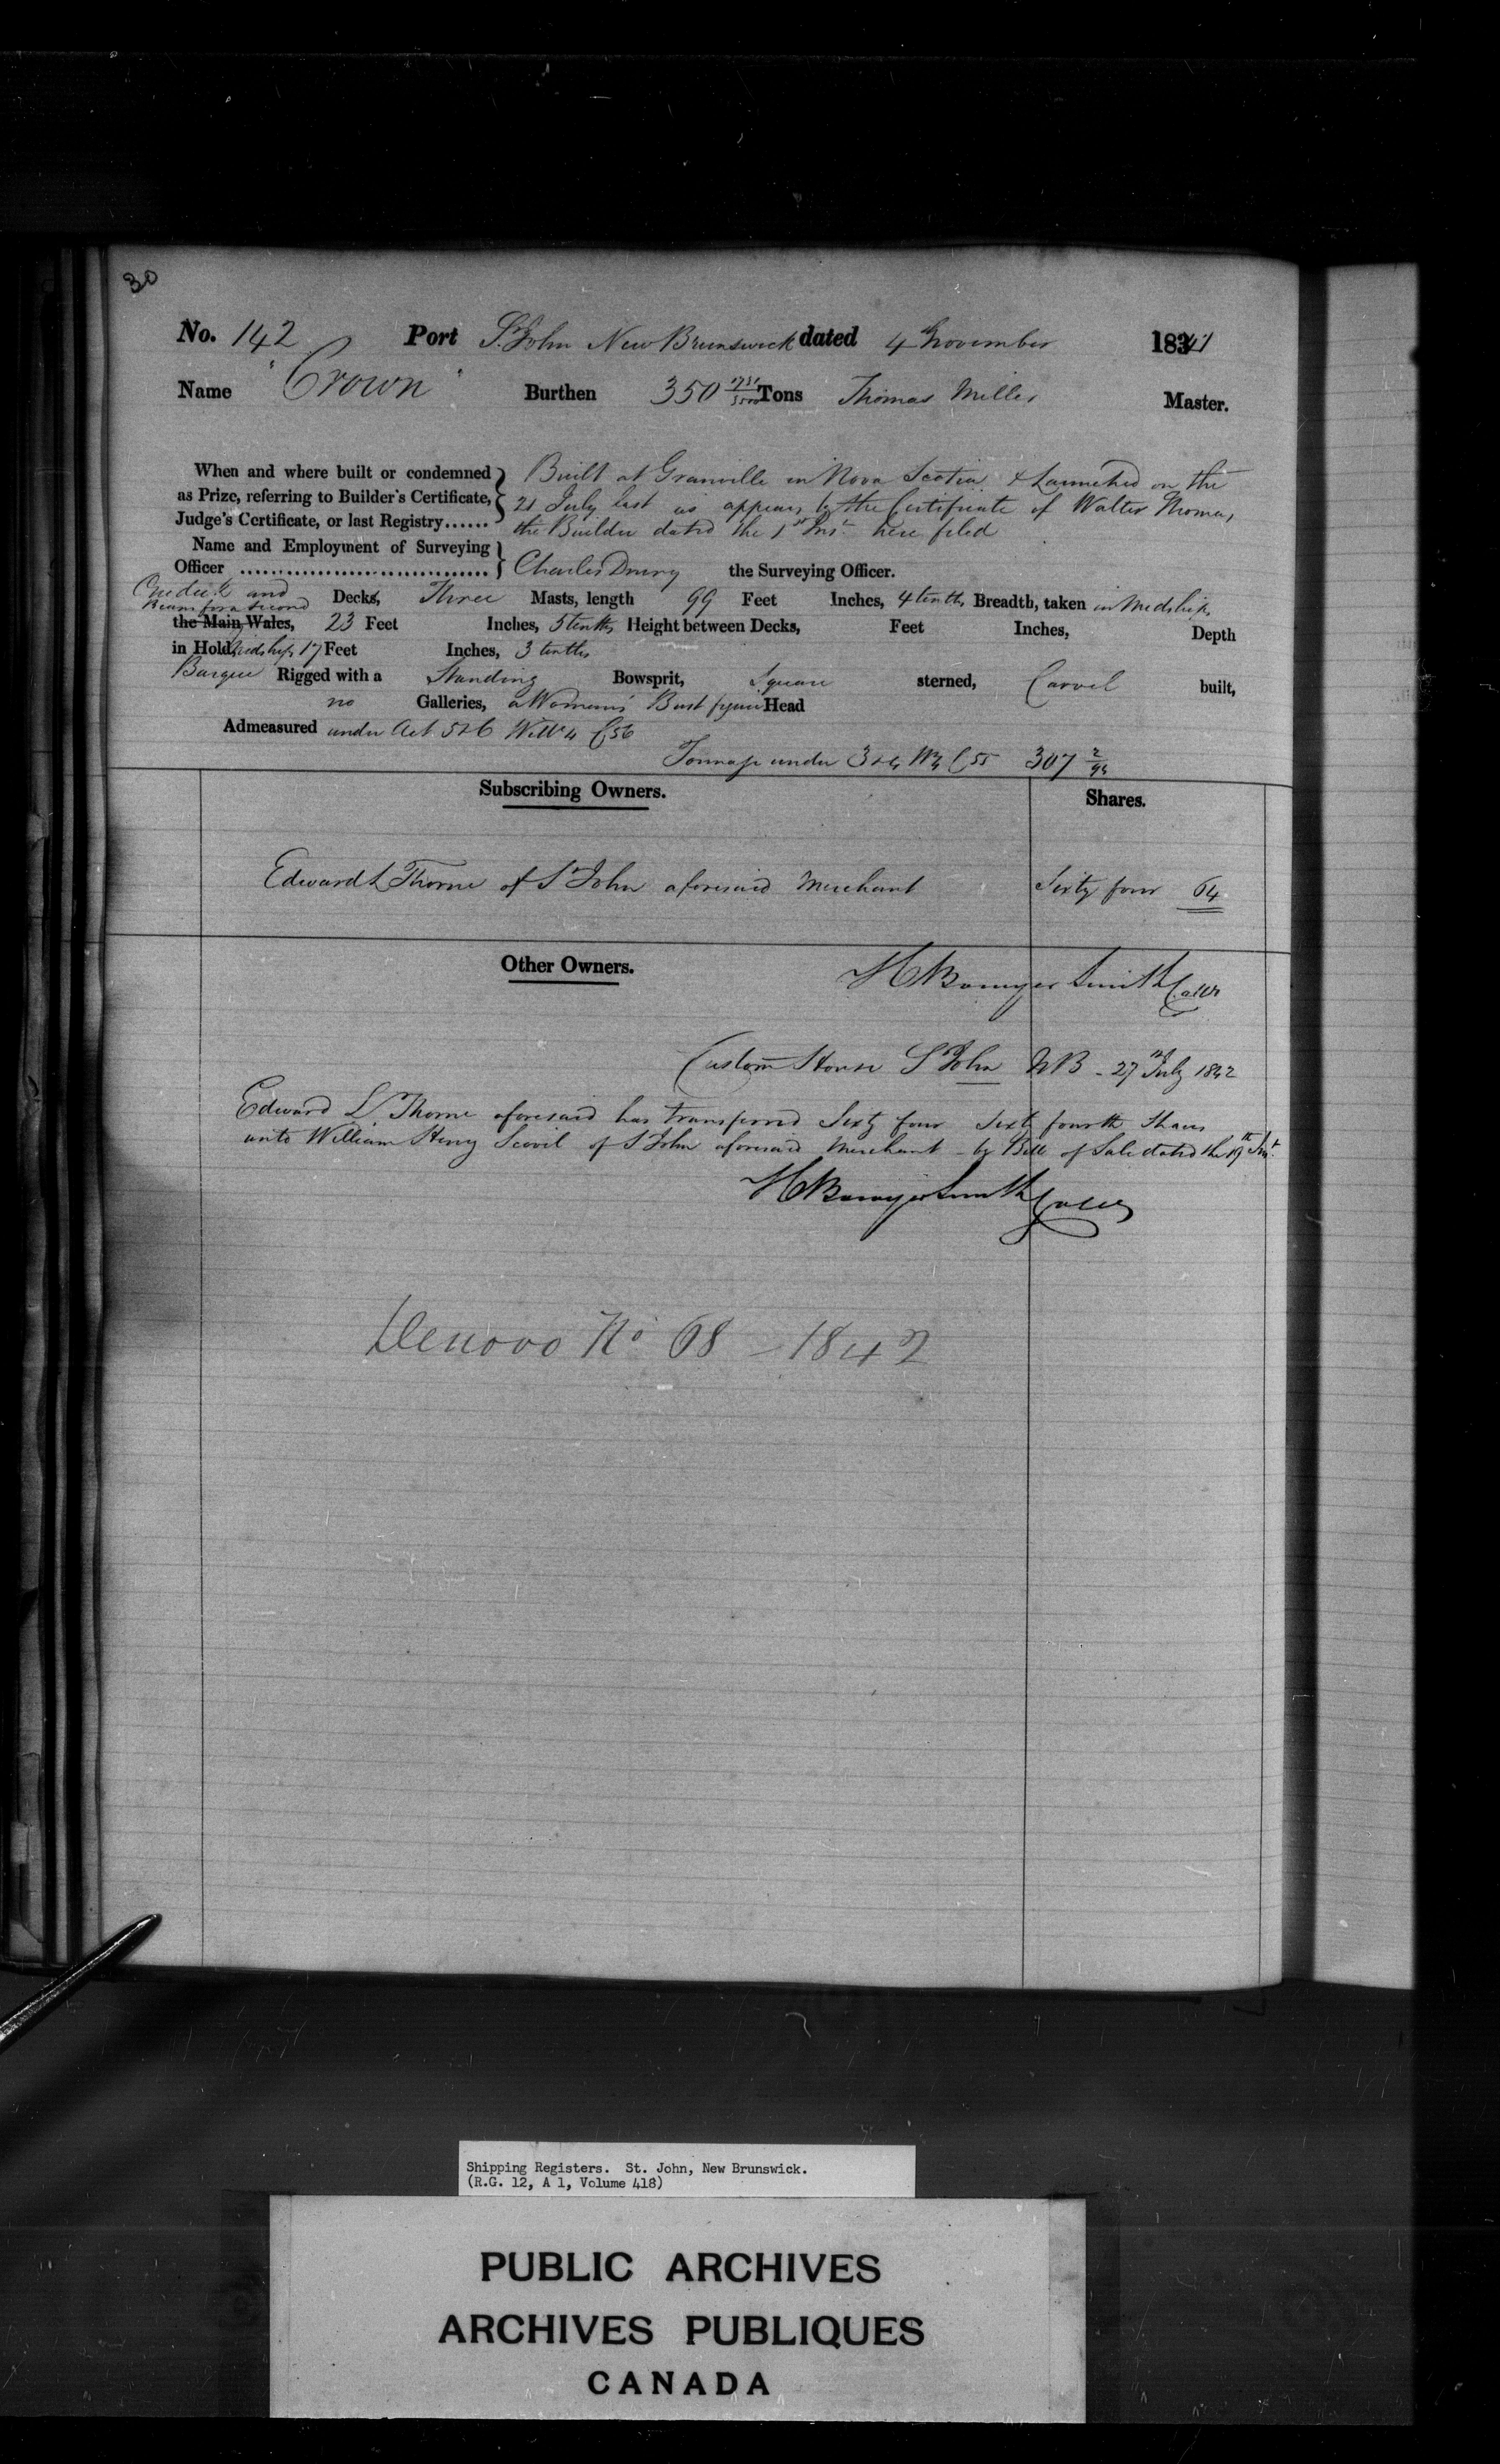 30
No. 142 Port St. John New Brunswick dated 4th November 1841
Name "Crown" Burthen 350 1731/3500 Tons Thomas Miller Master.
When and where built or condemned as Prize, referring to Builder's Certificate, Judge's Certificate, or last Registry...... Built at Granville in Nova Scotia & Launched on the
21 July last as appears by the Certificate of Walter Thomas
the Builder dated the 1st Inst. here filed
Name and Employment of Surveying Officer ................................ Charles Drury the Surveying Officer.
One deck and Beams for a second Decks, Three Masts, length 99 Feet Inches, 4 tenths Breadth, taken in Midships
the Main Wales, 23 Feet Inches, 5 tenths Height between Decks, Feet Inches, Depth
in Hold Midships 17 Feet Inches, 3 tenths
Barque Rigged with a Standing Bowsprit, Square sterned, Carvel built,
no Galleries, a Woman's Bust figure Head
Admeasured under Act 5 & 6 Will 4 C 56
Tonnage under 3 & 4 W 4 C 55 307 2/94
Subscribing Owners. Shares.
Edward L Thorne of St John aforesaid Merchant Sixty four 64
Other Owners.
H Bowyer Smith Collr
Custom House St John NB - 27th July 1842
Edward L Thorne aforesaid has transferred Sixty four Sixty fourth Shares
unto William Henry Scovil of St John aforesaid Merchant - by Bill of Sale dated the 19th Inst.
H Bowyer Smith Collr
Denovo No 68 - 1842
Shipping Registers. St. John, New Brunswick.
(R.G. 12, A 1, Volume 418)
PUBLIC ARCHIVES
ARCHIVES PUBLIQUES
CANADA